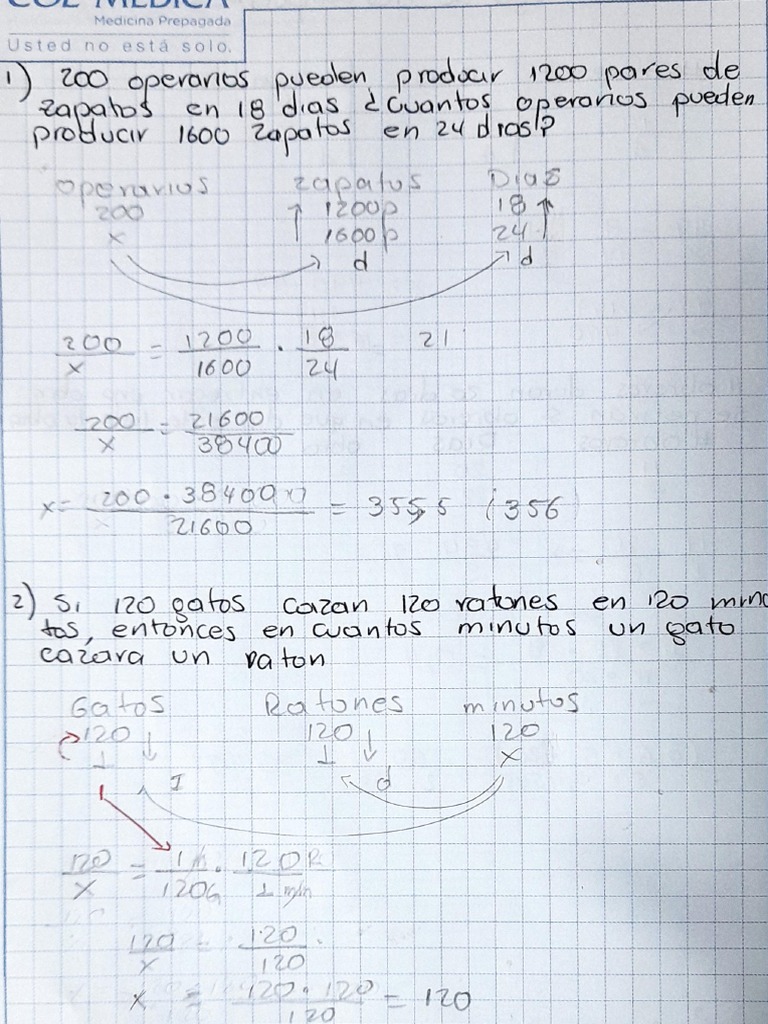 Medicina Prepagada
Usted no está solo.
1) 200 operarios pueden producir 1200 pares de
zapatos en 18 dias ¿cuantos operarios pueden
producir 1600 zapatos en 24 dias?
operarios zapatos Dias
200 ↑ 1200p 18 ↑
x 1600p 24
d d
200/x = 1200/1600 · 18/24 21
200/x = 21600/38400
x = 200 · 38400/21600 = 355,5 356
2) Si 120 gatos cazan 120 ratones en 120 minu
tos, entonces en cuantos minutos un gato
cazara un raton
Gatos Ratones minutos
120 ↓ 120 ↓ 120
1 1 x
I d
120/x = 1/120G · 120R/1
120/x = 120/120
x = 120 · 120/120 = 120